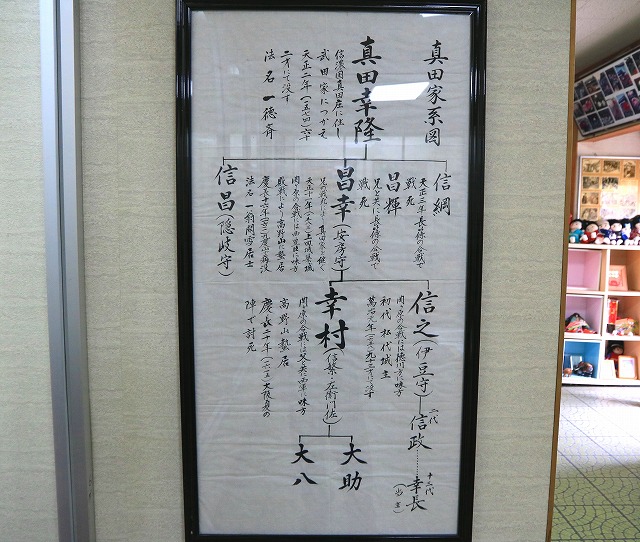 真田家系図
真田幸隆
信濃国真田庄に住し
武田家につかえ
天正二年(一五七四)六十
二才にて没す
法名 一徳斉
信綱
天正三年長篠の合戦で
戦死
昌輝
兄と共に長篠の合戦で
戦死
昌幸(安房守)
兄の戦死により真田家を継ぐ
関ヶ原の合戦には西軍に味方
敗戦により高野山に蟄居
信昌(隠岐守)
信之(伊豆守)
関ヶ原の合戦には徳川方に味方
初代 松代城主
萬治元年(一六五八)九十三才にて没す
二代
信政
十三代
幸長
(当主)
幸村(信繁・左衛門佐)
関ヶ原の合戦には父と共に西軍に味方
高野山蟄居
慶長二十年(一六一五)大阪夏の
陣で討死
大助
大八